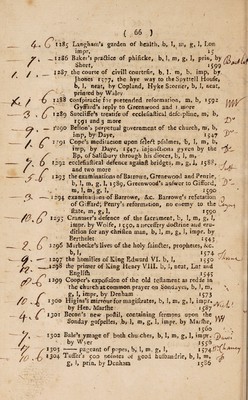 ( 66 )
4. 6 1285 Langham's garden of health, b, l, m, g, l, Lon
impr. 15
7. - 1286 Baker's practice of phisicke, b, l, m, g, l, prin, by
Short, 1599
1. 1. - 1287 the courte of civill courtesie, b, l, m, b, imp. by
Jhones 1577, the hye way to the Spyttell House,
b, l, neat, by Copland, Hyke Scorner, b, l, neat,
printed by Waley
1 6 1288 conspiracie for pretended reformation, m, b, 1592
Gyffard's reply to Greenwood and 1 more
3. 6 1289 Sutcliffe's treatise of ecclesiastical discipline, m, b,
1591 and 5 more
9. - 1290 Bilson's perpetual government of the church, m, b,
impr, by Daye, 1547
7. 6 1291 Cope's meditacion upon select psalmes, b, l, m, b,
imp, by Daye, 1547, injunctions gyven by the
Bp, of Salisbury through his diocez, b, l, m,
7. 6 1292 ecclesiastical defence against bridges, m, g, l, 1588,
and two more
5. 6 1293 the examinations of Barrowe, Greenwood and Penrie,
b, l, m, g, l, 1589, Greenwood's answer to Gifford,
m, l, m, g, l
3. - 1294 examinations of Barrowe, &c. Barrowe's refutation
of Giffard; Penry's reformation, no enemy to the
state, m, g, l, 1590
10. 6 1295 Cranmer's defence of the sacrament, b, l, m, g, l
impr. by Wolfe, 1550, a necessary doctrine and eru-
dition for any christen man, b, l, m, g, l, impr. by
Berthelet 1543
2. 6 1296 Marbecke's lives of the holy sainctes, prophetes, &c.
b, l, 1574
9. - 1297 the homilies of King Edward VI. b, l, 1550
12. - 1298 the primer of King Henry VIII. b, l, neat, Lat and
English 1545
8. 6 1299 Cooper's exposition of the old testament as redde in
the church at common prayer on Sondayes, b, l, m,
g, l, impr, by Denham 1573
10. 6 1300 Higins's mirrour for magistrates, b, l, m, g, l, impr.
by Hen. Marshe 1587
4. 6 1301 Becon's new postil, containing sermons upon the
Sonday gospelles, b, l, m, g, l, impr. by Marshe,
1566
7. - 1302 Bale's image of both churches, b, l, m, g, l, impr.
by Wyer 1550
7. 6 1303 —— pageant of popes, b, l, m, g, l, 1574
10. 6 1304 Tusser's 500 pointes of good husbandrie, b, l, m,
g, l, prin. by Denham 1586